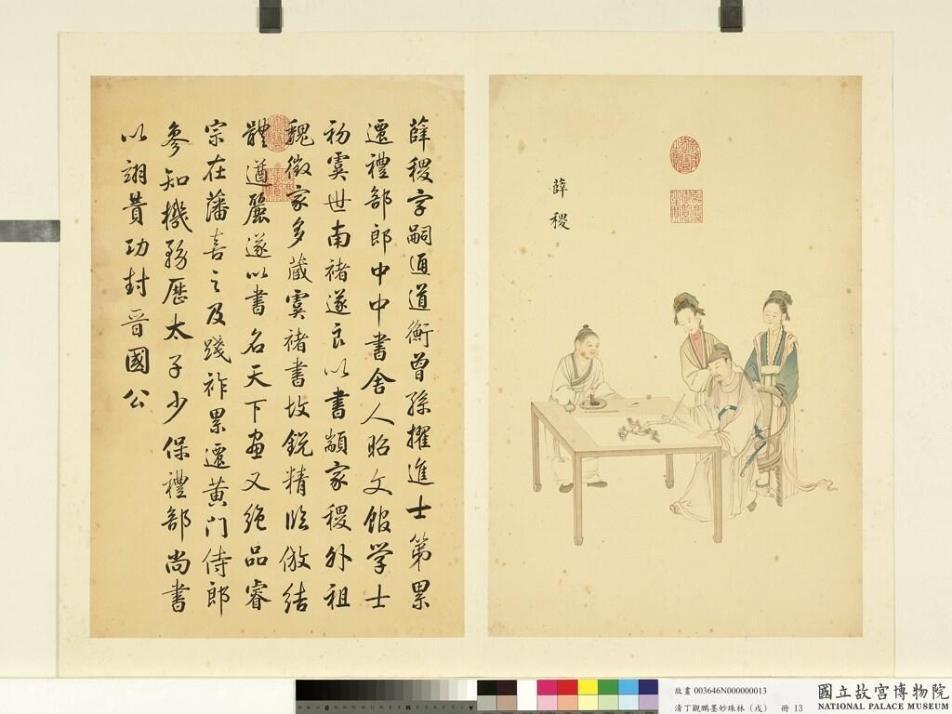 薛稷
薛稷字嗣通道衡曾孫擢進士第累
遷禮部郎中中書舍人昭文館学士
初虞世南褚遂良以書顓家稷外祖
魏徵家多藏虞褚書故銳精臨倣結
體遒麗遂以書名天下畫又絕品睿
宗在藩喜之及踐祚累遷黃门侍郎
參知機務歷太子少保禮部尚書
以翊贊功封晉國公
故畫 003646N000000013
清丁觀鵬墨妙珠林（戌） 冊 13
國立故宮博物院
NATIONAL PALACE MUSEUM